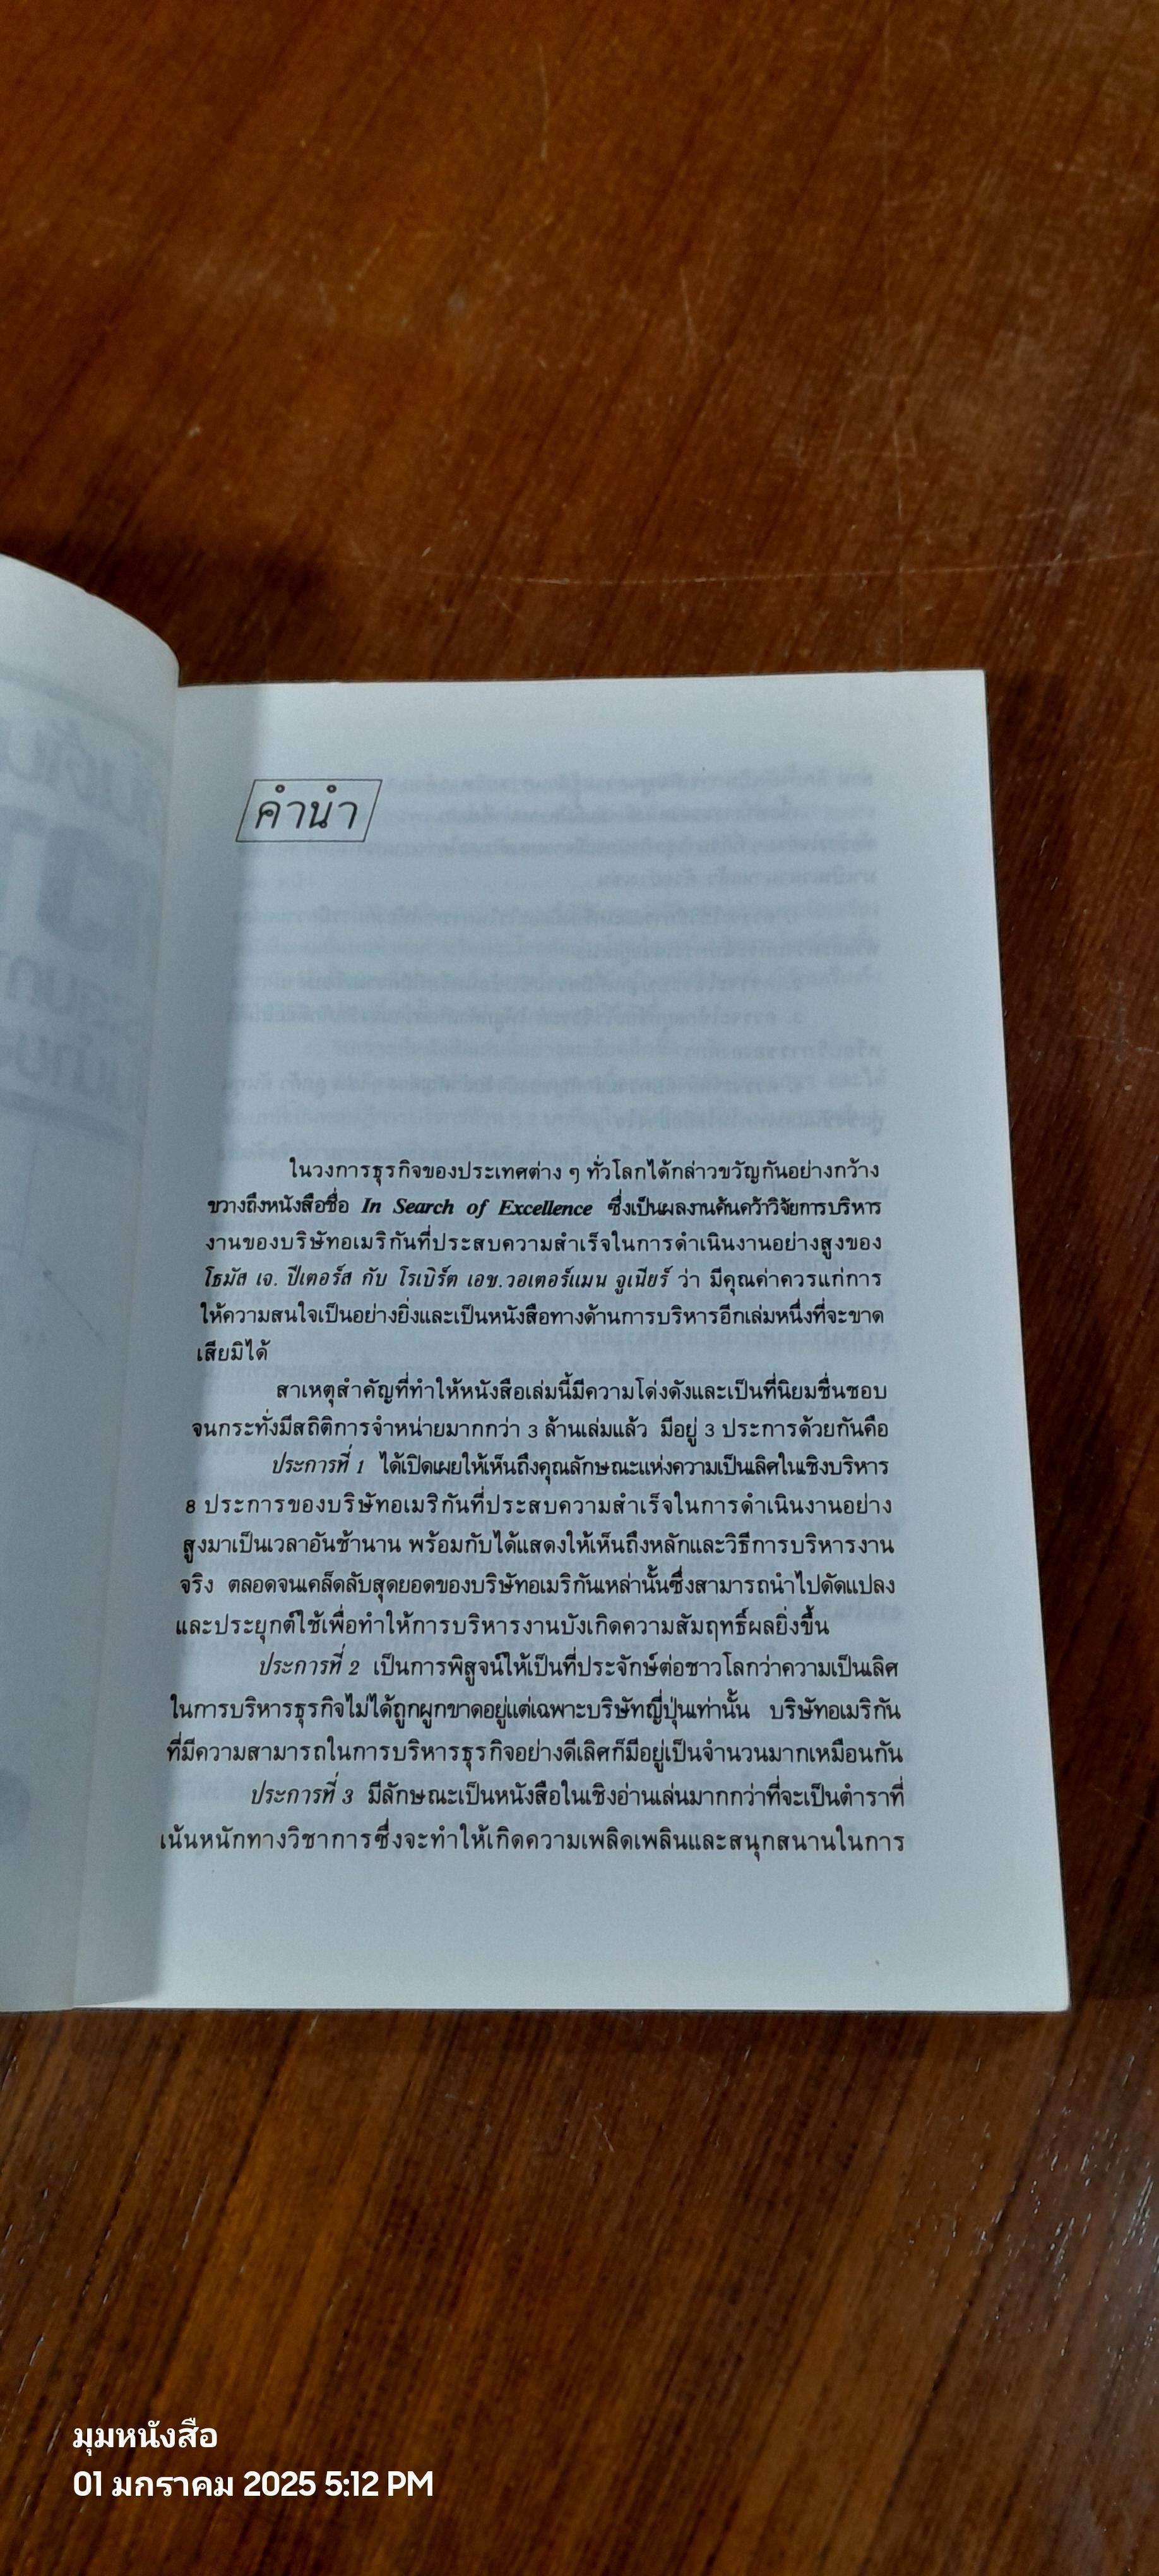 คำนำ
ในวงการธุรกิจของประเทศต่าง ๆ ทั่วโลกได้กล่าวขวัญกันอย่างกว้าง
ขวางถึงหนังสือชื่อ In Search of Excellence ซึ่งเป็นผลงานค้นคว้าวิจัยการบริหาร
งานของบริษัทอเมริกันที่ประสบความสำเร็จในการดำเนินงานอย่างสูงของ
โธมัส เจ. ปีเตอร์ส กับ โรเบิร์ต เอช.วอเตอร์แมน จูเนียร์ ว่า มีคุณค่าควรแก่การ
ให้ความสนใจเป็นอย่างยิ่งและเป็นหนังสือทางด้านการบริหารอีกเล่มหนึ่งที่จะขาด
เสียมิได้
สาเหตุสำคัญที่ทำให้หนังสือเล่มนี้มีความโด่งดังและเป็นที่นิยมชื่นชอบ
จนกระทั่งมีสถิติการจำหน่ายมากกว่า 3 ล้านเล่มแล้ว มีอยู่ 3 ประการด้วยกันคือ
ประการที่ 1 ได้เปิดเผยให้เห็นถึงคุณลักษณะแห่งความเป็นเลิศในเชิงบริหาร
8 ประการของบริษัทอเมริกันที่ประสบความสำเร็จในการดำเนินงานอย่าง
สูงมาเป็นเวลาอันช้านาน พร้อมกับได้แสดงให้เห็นถึงหลักและวิธีการบริหารงาน
จริง ตลอดจนเคล็ดลับสุดยอดของบริษัทอเมริกันเหล่านั้นซึ่งสามารถนำไปดัดแปลง
และประยุกต์ใช้เพื่อทำให้การบริหารงานบังเกิดความสัมฤทธิ์ผลยิ่งขึ้น
ประการที่ 2 เป็นการพิสูจน์ให้เป็นที่ประจักษ์ต่อชาวโลกว่าความเป็นเลิศ
ในการบริหารธุรกิจไม่ได้ถูกผูกขาดอยู่แต่เฉพาะบริษัทญี่ปุ่นเท่านั้น บริษัทอเมริกัน
ที่มีความสามารถในการบริหารธุรกิจอย่างดีเลิศก็มีอยู่เป็นจำนวนมากเหมือนกัน
ประการที่ 3 มีลักษณะเป็นหนังสือในเชิงอ่านเล่นมากกว่าที่จะเป็นตำราที่
เน้นหนักทางวิชาการซึ่งจะทำให้เกิดความเพลิดเพลินและสนุกสนานในการ
มุมหนังสือ
01 มกราคม 2025 5:12 PM